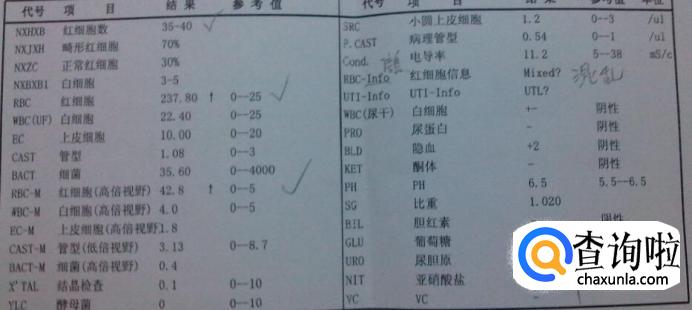 代号 项目 结果 参考值
NXHXB 红细胞数 35-40
NXJXH 畸形红细胞 70%
NXZC 正常红细胞 30%
NXBXB1 白细胞 3-5
RBC 红细胞 237.80 ↑ 0--25
WBC(UF) 白细胞 22.40 0--25
EC 上皮细胞 10.00 0--20
CAST 管型 1.08 0--3
BACT 细菌 35.60 0--4000
RBC-M 红细胞(高倍视野) 42.8 ↑ 0--5
WBC-M 白细胞(高倍视野) 4.0 0--5
EC-M 上皮细胞(高倍视野) 1.8
CAST-M 管型(低倍视野) 3.13 0--8.7
BACT-M 细菌(高倍视野) 0.4
X'TAL 结晶检查 0.1 0--10
YLC 酵母菌 0 0--10
代号 项目 结果 参考值 单位
SRC 小圆上皮细胞 1.2 0--3 /ul
P.CAST 病理管型 0.54 0--1 /ul
Cond. 电导率 11.2 5--38 mS/c
RBC-Info 红细胞信息 Mixed? 混乱
UTI-Info UTI-Info UTL?
WBC(尿干) 白细胞 +- 阴性
PRO 尿蛋白 - 阴性
BLD 隐血 +2 阴性
KET 酮体 - 阴性
PH PH 6.5 5.5--6.5
SG 比重 1.020
BIL 胆红素 阴性
GLU 葡萄糖
URO 尿胆原
NIT 亚硝酸盐
VC VC -
查询啦
chaxunla.com